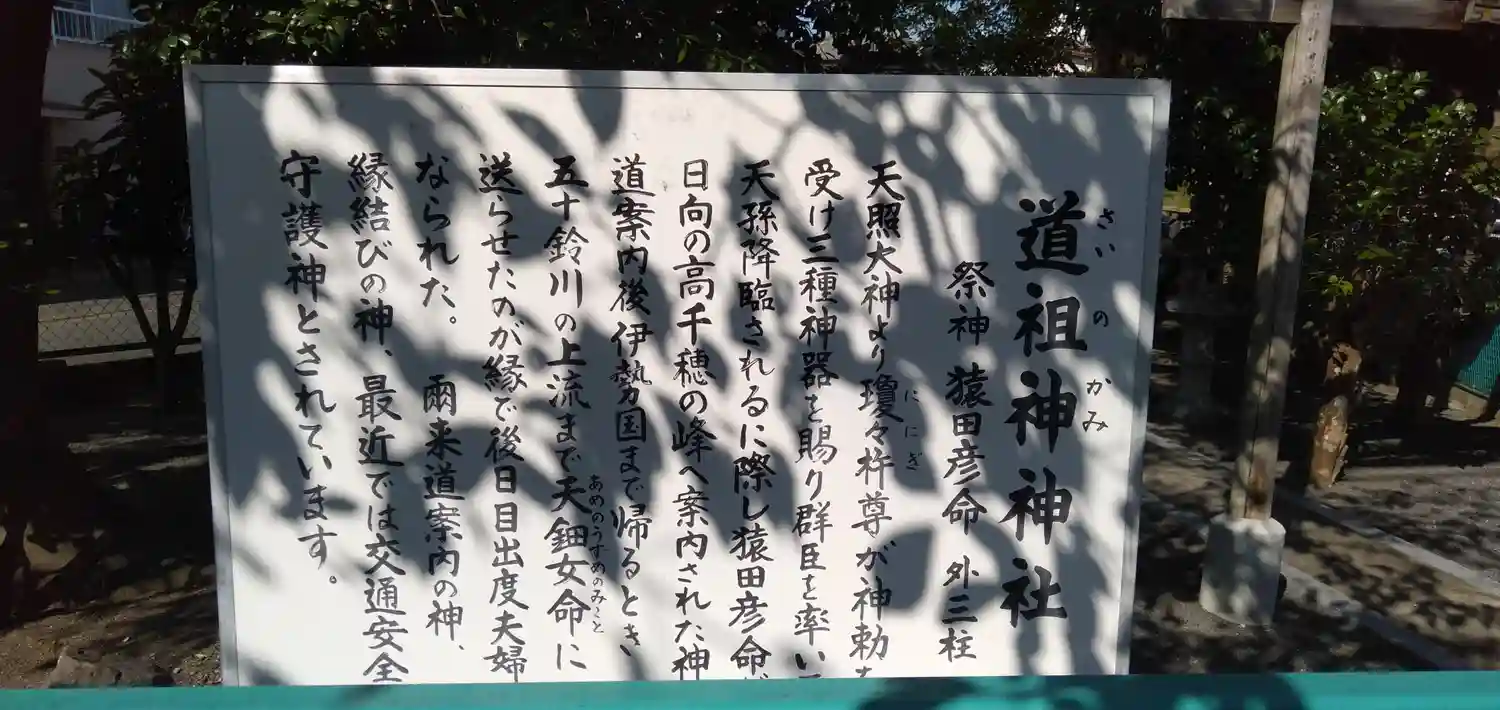 道祖神神社
さいのかみ
祭神 猿田彦命 外三柱
天照大神より瓊々杵尊が神勅を
ににぎ
受け三種神器を賜り群臣を率いて
天孫降臨されるに際し猿田彦命が
日向の高千穂の峰へ案内された神
道案内後伊勢国まで帰るとき
五十鈴川の上流まで天鈿女命に
あめのうずめのみこと
送らせたのが縁で後日目出度夫婦
なられた。 爾来道案内の神、
縁結びの神、最近では交通安全
守護神とされています。